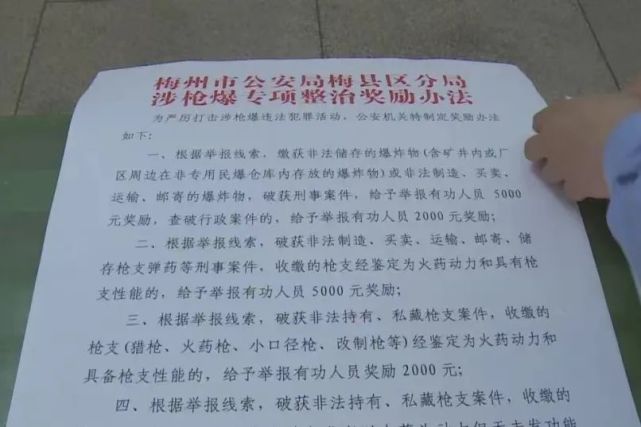 梅州市公安局梅县区分局
涉枪爆专项整治奖励办法
为严厉打击涉枪爆违法犯罪活动，公安机关特制定奖励办法
如下：
一、根据举报线索，缴获非法储存的爆炸物(含矿井内或厂
区周边在非专用民爆仓库内存放的爆炸物)或非法制造、买卖、
运输、邮寄的爆炸物，破获刑事案件，给予举报有功人员 5000
元奖励，查破行政案件的，给予举报有功人员 2000 元奖励；
二、根据举报线索，破获非法制造、买卖、运输、邮寄、储
存枪支弹药等刑事案件，收缴的枪支经鉴定为火药动力和具有枪
支性能的，给予举报有功人员 5000 元奖励；
三、根据举报线索，破获非法持有、私藏枪支案件，收缴的
枪支(猎枪、火药枪、小口径枪、改制枪等)经鉴定为火药动力和
具备枪支性能的，给予举报有功人员奖励 2000 元；
四、根据举报线索，破获非法持有、私藏枪支案件，收缴的